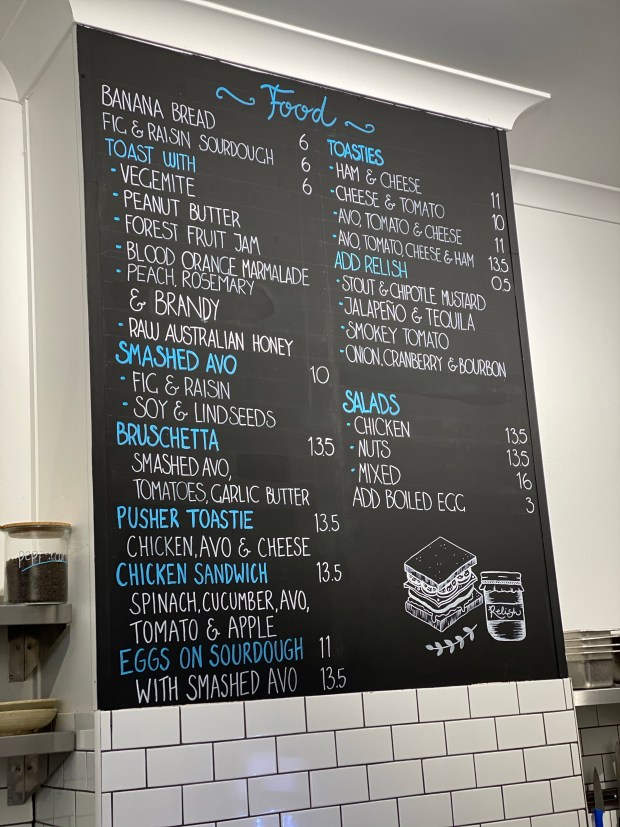 Food
BANANA BREAD 6
FIG & RAISIN SOURDOUGH 6
TOAST WITH 6
- VEGEMITE
- PEANUT BUTTER
- FOREST FRUIT JAM
- BLOOD ORANGE MARMALADE
- PEACH, ROSEMARY
& BRANDY
- RAW AUSTRALIAN HONEY
SMASHED AVO 10
- FIG & RAISIN
- SOY & LINDSEEDS
BRUSCHETTA 13.5
SMASHED AVO,
TOMATOES, GARLIC BUTTER
PUSHER TOASTIE 13.5
CHICKEN, AVO & CHEESE
CHICKEN SANDWICH 13.5
SPINACH, CUCUMBER, AVO,
TOMATO & APPLE
EGGS ON SOURDOUGH 11
WITH SMASHED AVO 13.5
TOASTIES
- HAM & CHEESE 11
- CHEESE & TOMATO 10
- AVO, TOMATO & CHEESE 11
- AVO, TOMATO, CHEESE & HAM 13.5
ADD RELISH 0.5
- STOUT & CHIPOTLE MUSTARD
- JALAPEÑO & TEQUILA
- SMOKEY TOMATO
- ONION, CRANBERRY & BOURBON
SALADS
- CHICKEN 13.5
- NUTS 13.5
- MIXED 16
ADD BOILED EGG 3
Relish